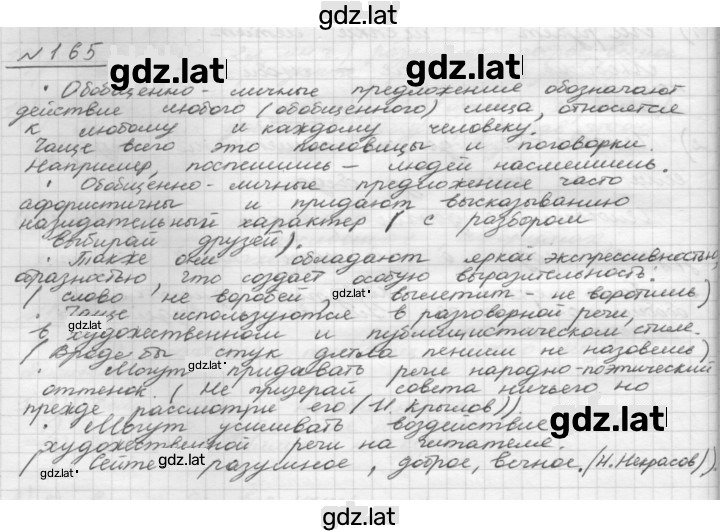 gdz.lat
№165
gdz.lat gdz.lat
• Обобщенно-личные предложение обозначают
действие любого (обобщенного) лица, относятся
к любому и каждому человеку.
Чаще всего это пословицы и поговорки.
Например, поспешишь – людей насмешишь.
• Обобщённо-личные предложение часто
афористичны и придают высказыванию
назидательный характер (с разбором
выбирай друзей).
• Также они обладают яркой экспрессивностью,
образностью, что создает особую выразительность.
(слово не воробей, вылетит - не воротишь)
gdz.lat
• Чаще используются в разговорной речи,
в художественном и публицистическом стиле.
gdz.lat
(Вроде бы стук дятла пением не назовешь)
• Могут придавать речи народно-поэтический
gdz.lat
оттенок. (Не презирай совета ничьего но
прежде рассмотри его (И. Крылов))
• Могут усиливать воздействие
gdz.lat
художественной речи на читателя.
(Сейте разумное, доброе, вечное. (Н. Некрасов)).
gdz.lat gdz.lat
gdz.lat